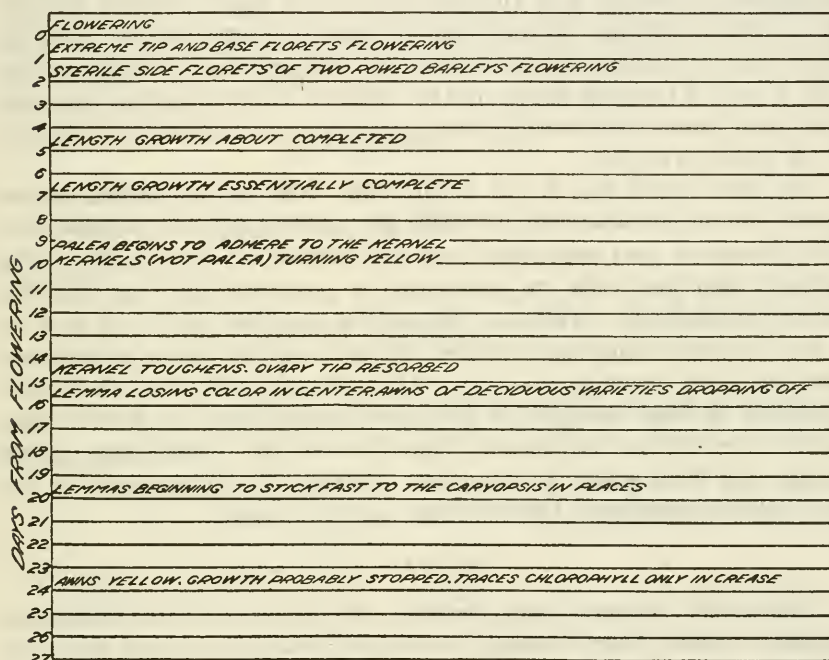 FLOWERING
0
EXTREME TIP AND BASE FLORETS FLOWERING
1
STERILE SIDE FLORETS OF TWO ROWED BARLEYS FLOWERING
2
3
4
LENGTH GROWTH ABOUT COMPLETED
5
6
LENGTH GROWTH ESSENTIALLY COMPLETE
7
8
9
PALEA BEGINS TO ADHERE TO THE KERNEL
10 KERNELS (NOT PALEA) TURNING YELLOW
11
12
13
14
KERNEL TOUGHENS. OVARY TIP RESORBED
15
LEMMA LOSING COLOR IN CENTER. AWNS OF DECIDUOUS VARIETIES DROPPING OFF
16
17
18
19
LEMMAS BEGINNING TO STICK FAST TO THE CARYOPSIS IN PLACES
20
21
22
23
AWNS YELLOW. GROWTH PROBABLY STOPPED. TRACES CHLOROPHYLL ONLY IN CREASE
24
25
26
27
DAYS FROM FLOWERING